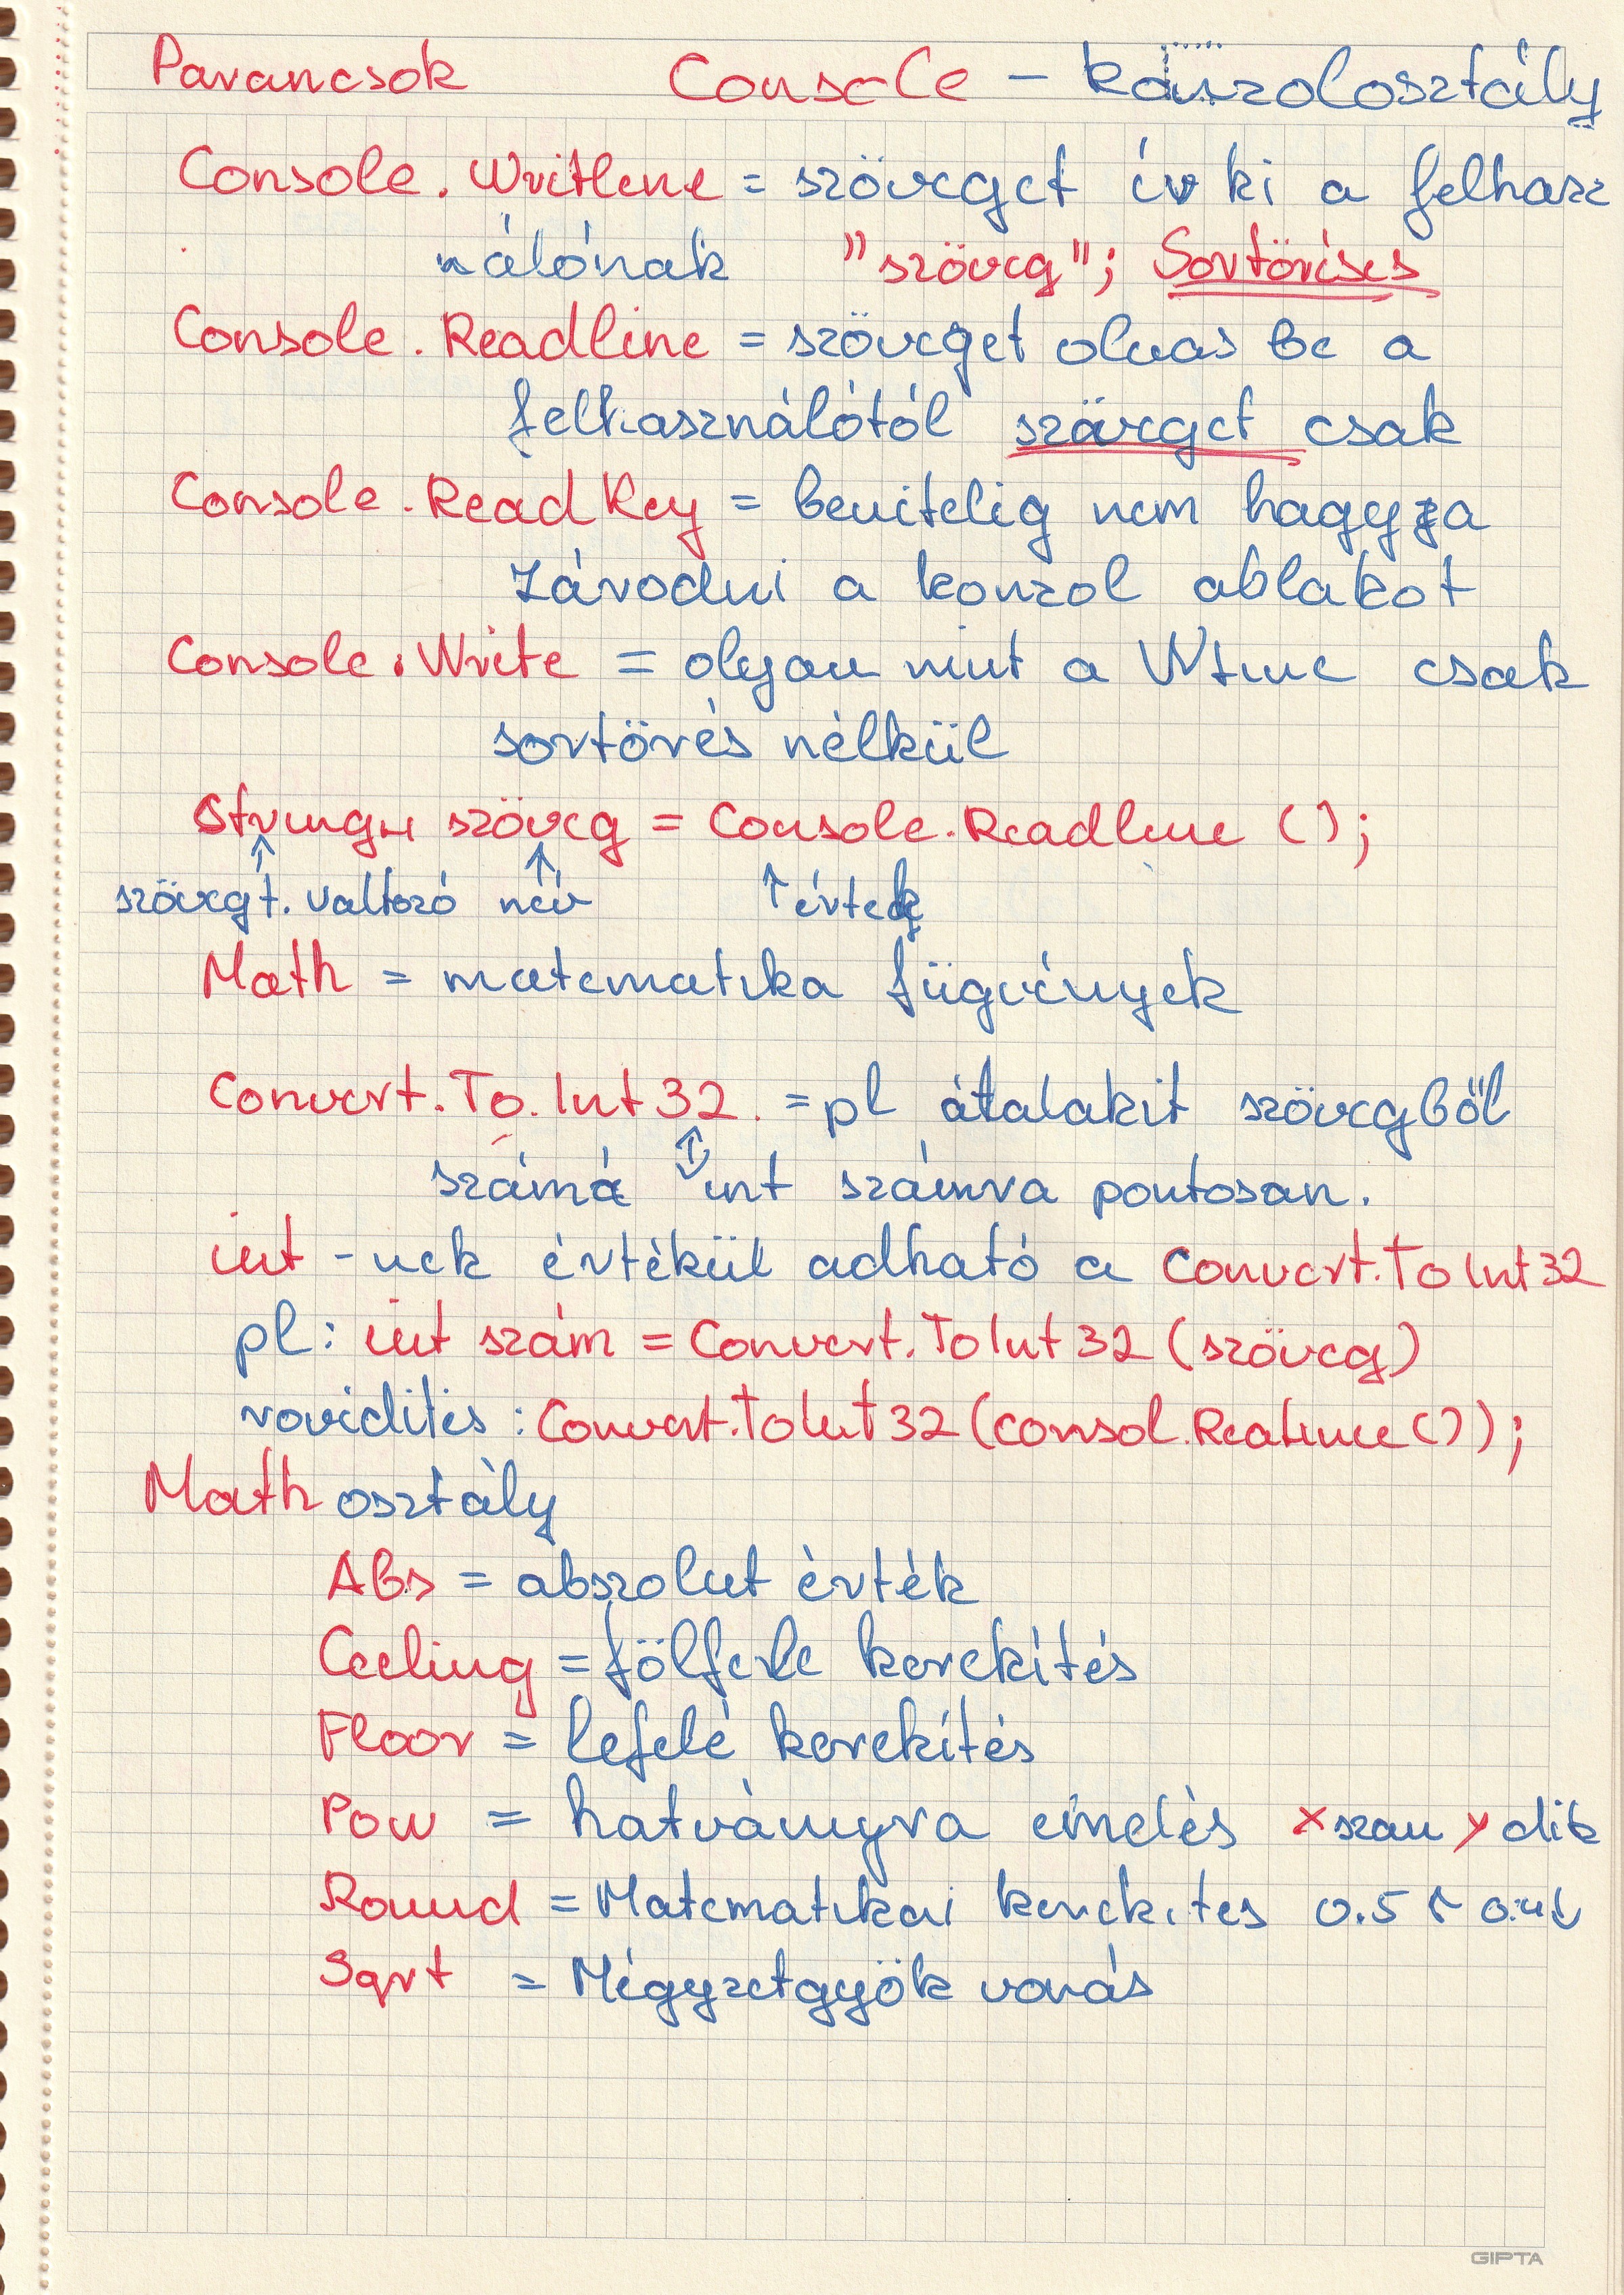 Parancsok Console - konzolosztály
Console.Writlene = szöveget ír ki a felhasz
nálónak "szöveg"; Sortöréses
Console.Readline = szöveget olvas be a
felhasználótól szöveget csak
Console.ReadKey = bevitelig nem hagyja
záródni a konzol ablakot
Console.Write = olyan mint a csak
sortörés nélkül
String szöveg = Console.Readline ();
szövegt. változó név érték
Math = matematika függvények
Convert.To.Int32. = pl átalakit szövegből
számá int számra pontosan.
int -nek értékül adható a Convert.ToInt32
pl: int szám = Convert.ToInt32 (szöveg)
rovidités : Convert.ToInt32 (consol.Realine ());
Math osztály
Abs = abszolut érték
Ceeling = fölfele kerekítés
Floor = lefelé kerekítés
Pow = hatványra emelés x szam y dik
Round = Matematikai kerekites 0.5 ↑ 0.4 ↓
Sqrt = Négyzetgyök vonás
GIPTA